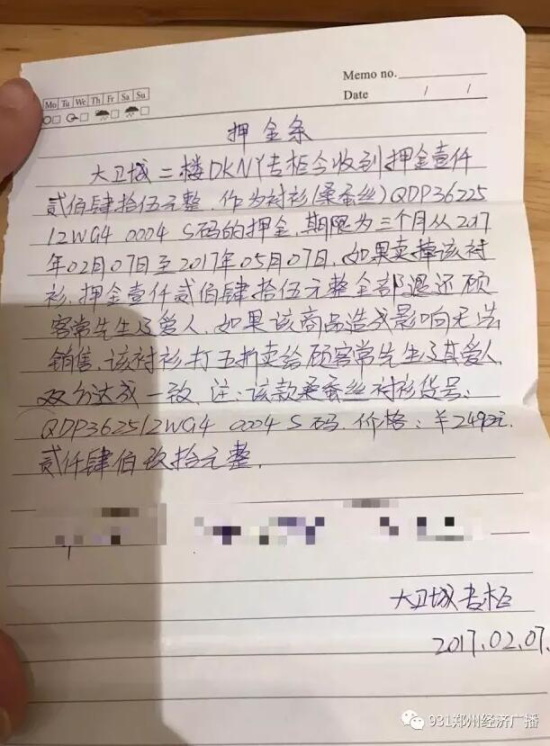 Memo no.
Mo Tu We Th Fr Sa Su
Date / /
押金条
大卫城二楼DKNY专柜今收到押金壹仟
贰佰肆拾伍元整 作为衬衫(桑蚕丝)QDP36225
12WG4 0004 S码的押金,期限为三个月从2017
年02月07日至2017年05月07日.如果卖掉该衬
衫,押金壹仟贰佰肆拾伍元整全部退还顾
客常先生及爱人.如果该商品造成影响无法
销售,该衬衫打五折卖给顾客常先生及其爱人
双方达成一致.注:该款桑蚕丝衬衫货号:
QDP362512WG4 0004 S码.价格:¥2490元.
贰仟肆佰玖拾元整.
大卫城专柜
2017.02.07.
931郑州经济广播